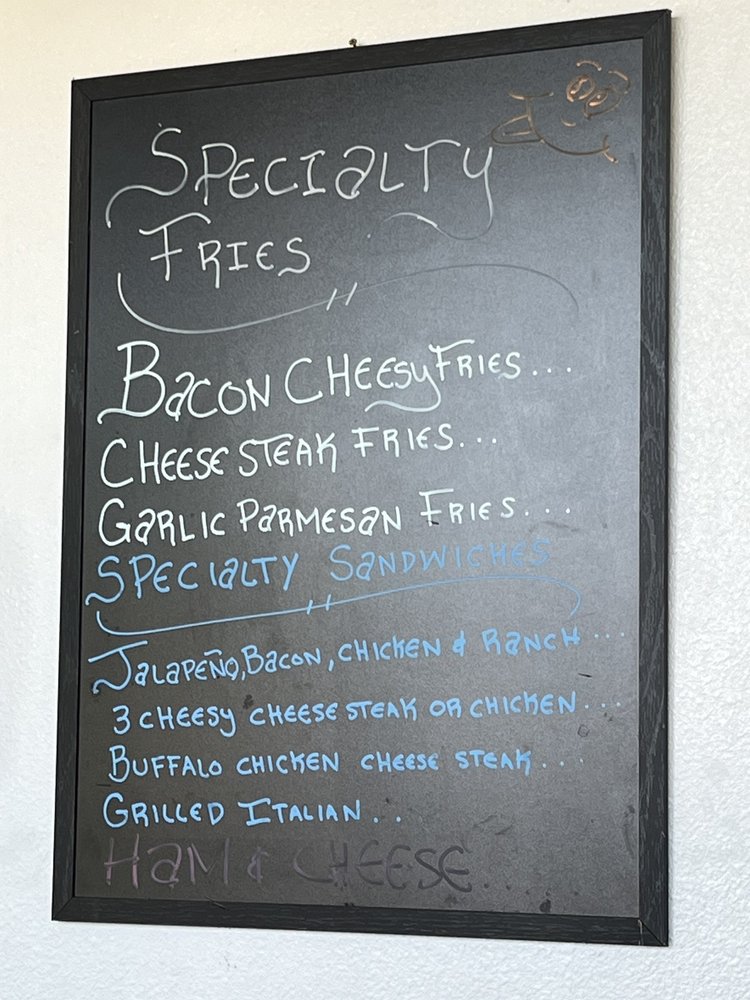 SPECIALTY
FRIES
BACON CHEESY FRIES...
CHEESE STEAK FRIES...
GARLIC PARMESAN FRIES...
SPECIALTY SANDWICHES
JALAPEÑO, BACON, CHICKEN & RANCH...
3 CHEESY CHEESE STEAK OR CHICKEN...
BUFFALO CHICKEN CHEESE STEAK...
GRILLED ITALIAN..
HAM & CHEESE....